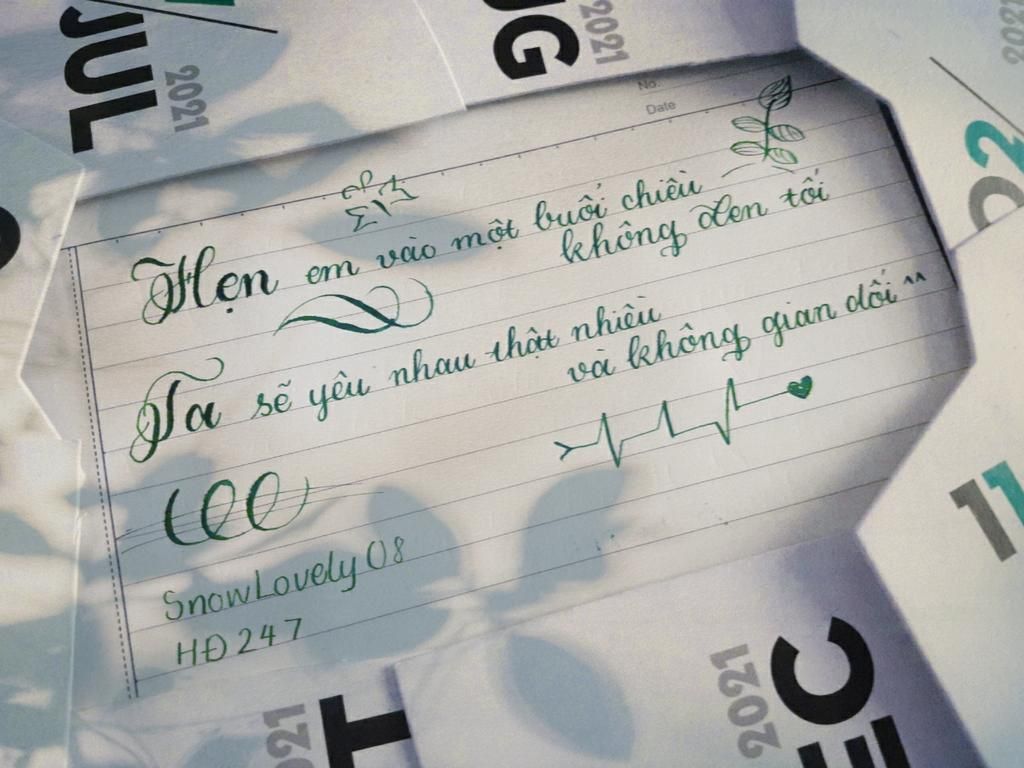 JUL
2021
UG
2021
2021
No.
Date
Hẹn em vào một buổi chiều
không đen tối
Ta sẽ yêu nhau thật nhiều
và không gian dối ^^
SnowLovely08
HĐ247
02
11
2021
T
2021
EC